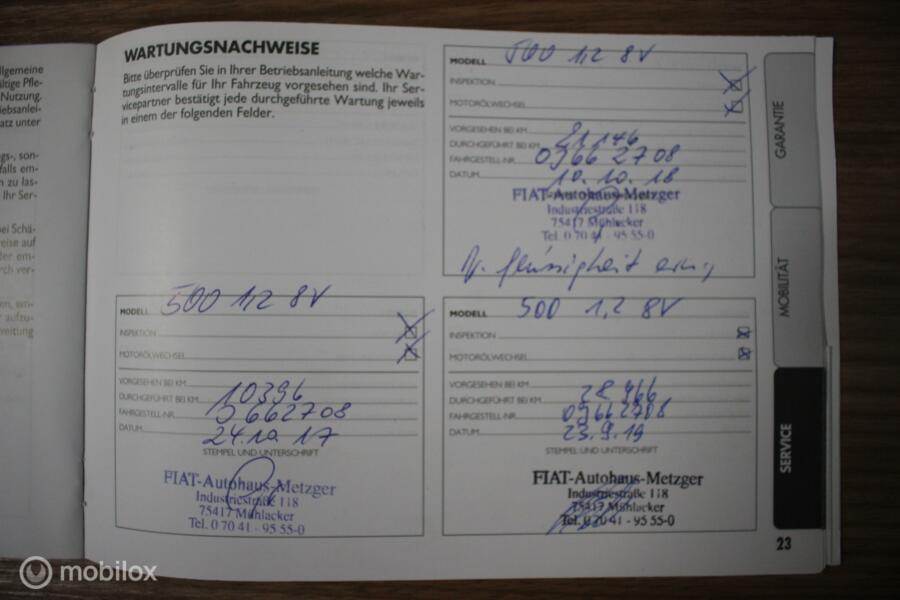 llgemeine
ltige Pfle-
Nutzung.
iebsanlei-
atz unter
gs-, son-
falls em-
n zu las-
Ihr Ser-
bei Schä-
weise auf
der em-
rch ver-
en, em-
r aufzu-
weitung
WARTUNGSNACHWEISE
Bitte überprüfen Sie in Ihrer Betriebsanleitung welche War-
tungsintervalle für Ihr Fahrzeug vorgesehen sind. Ihr Ser-
vicepartner bestätigt jede durchgeführte Wartung jeweils
in einem der folgenden Felder.
MODELL 500 1,2 8V
INSPEKTION
MOTORÖLWECHSEL
VORGESEHEN BEI KM
DURCHGEFÜHRT BEI KM 21 146
FAHRGESTELL-NR. 09662708
DATUM 10.10.18
FIAT-Autohaus-Metzger
Industriestraße 118
75417 Mühlacker
Tel. 0 70 41 - 95 55-0
flüssigkeit
MODELL 500 1,2 8V
INSPEKTION
MOTORÖLWECHSEL
VORGESEHEN BEI KM
DURCHGEFÜHRT BEI KM 10396
FAHRGESTELL-NR. 9662708
DATUM 24.10.17
STEMPEL UND UNTERSCHRIFT
FIAT-Autohaus-Metzger
Industriestraße 118
75417 Mühlacker
Tel. 0 70 41 - 95 55-0
MODELL 500 1,2 8V
INSPEKTION
MOTORÖLWECHSEL
VORGESEHEN BEI KM
DURCHGEFÜHRT BEI KM 28 966
FAHRGESTELL-NR. 09662708
DATUM 23.9.19
STEMPEL UND UNTERSCHRIFT
FIAT-Autohaus-Metzger
Industriestraße 118
75417 Mühlacker
Tel. 0 70 41 - 95 55-0
GARANTIE
MOBILITÄT
SERVICE
23
mobilox